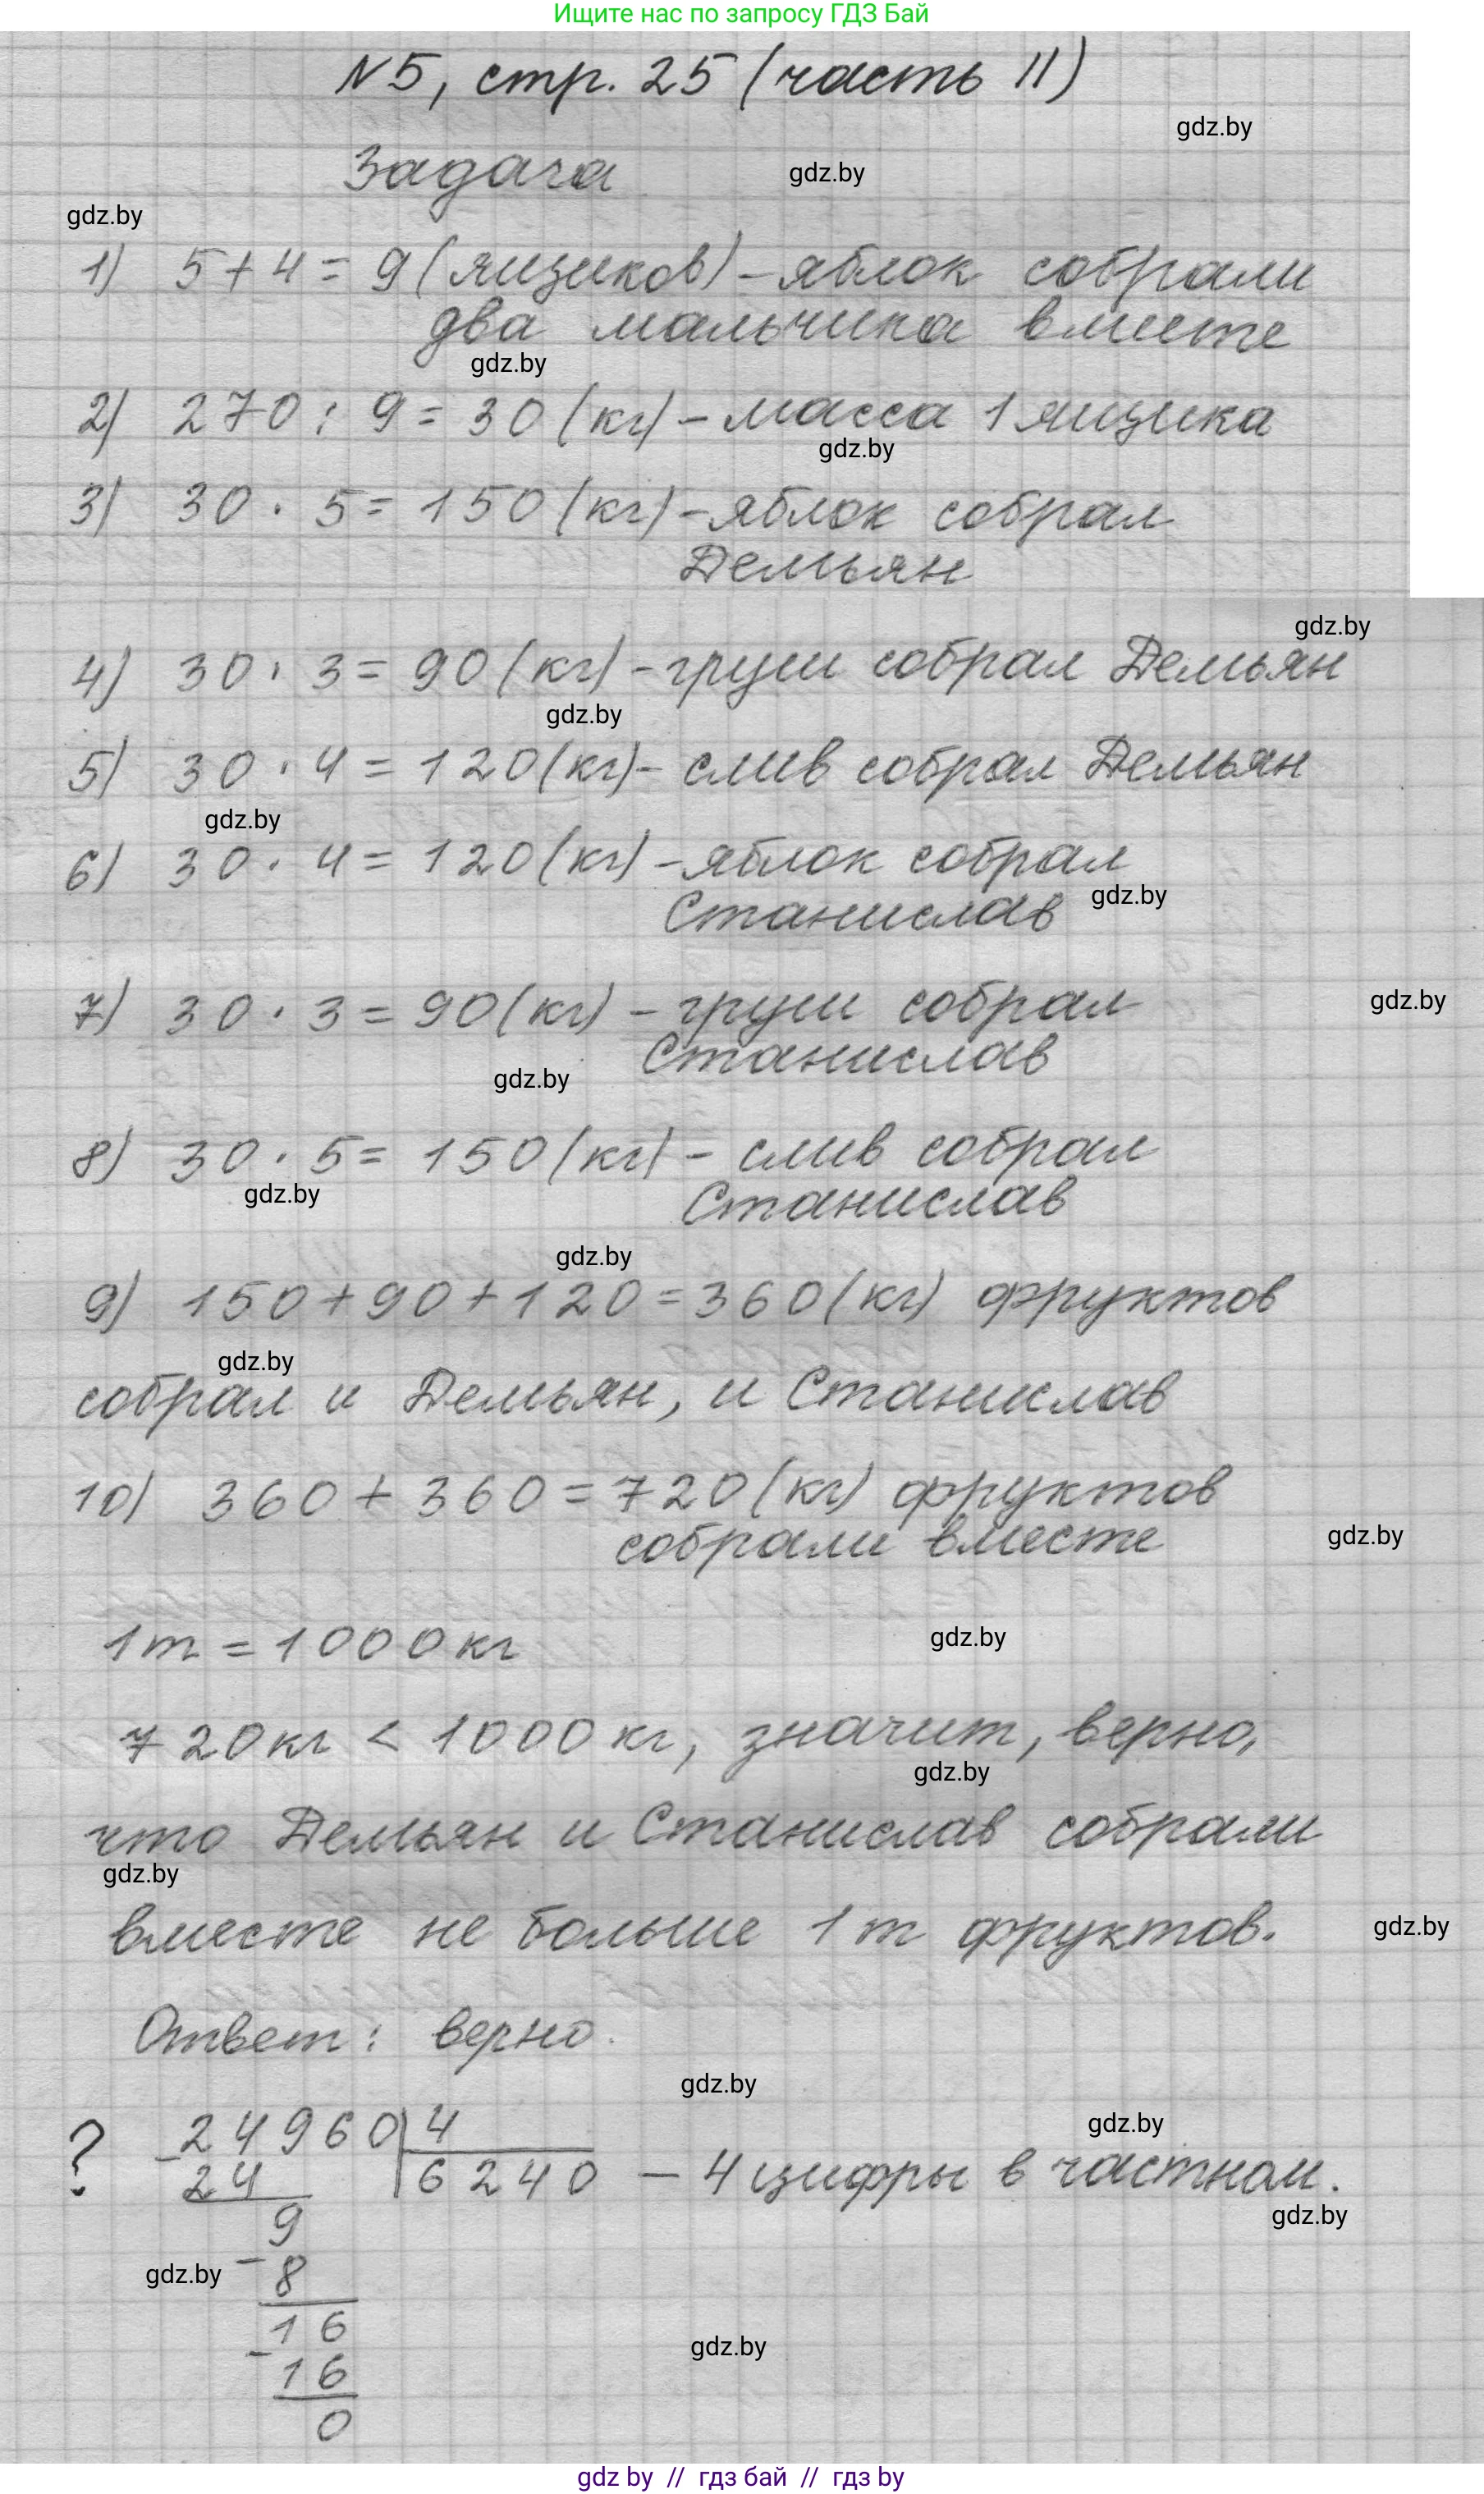 Ищите нас по запросу ГДЗ Бай
N5, стр. 25 (часть II)
gdz.by
Задача
gdz.by
gdz.by
1) 5+4=9(ящиков)-яблок собрали
два мальчика вместе
gdz.by
2) 270:9=30(кг)-масса 1 ящика
gdz.by
3) 30·5=150(кг)-яблок собрал
Демьян
gdz.by
4) 30·3=90(кг)-груш собрал Демьян
gdz.by
5) 30·4=120(кг)-слив собрал Демьян
gdz.by
6) 30·4=120(кг)-яблок собрал
gdz.by
Станислав
7) 30·3=90(кг)-груш собрал
gdz.by
Станислав
gdz.by
8) 30·5=150(кг)-слив собрал
gdz.by
Станислав
gdz.by
9) 150+90+120=360(кг) фруктов
gdz.by
собрал и Демьян, и Станислав
10) 360+360=720(кг) фруктов
собрали вместе
gdz.by
1т=1000кг
gdz.by
720кг<1000кг, значит, верно,
gdz.by
что Демьян и Станислав собрали
gdz.by
вместе не больше 1т фруктов.
gdz.by
Ответ: верно.
gdz.by
gdz.by
? -24960|4
24 6240 - 4 цифры в частном.
gdz.by
9
-8
gdz.by
16
gdz.by
-16
0
gdz by // гдз бай // гдз by